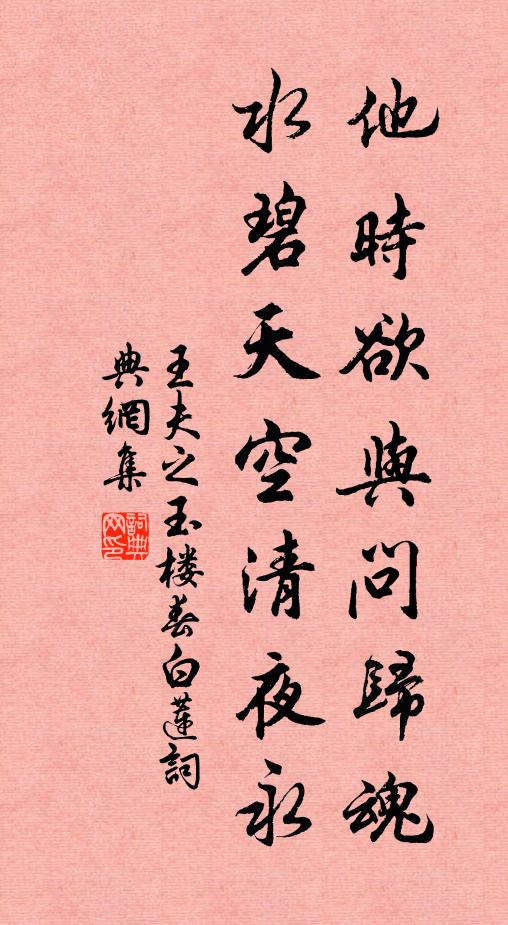 他時欲與問歸魂
水碧天空清夜永
王夫之玉楼春白蓮詞
典網集
詞典網印